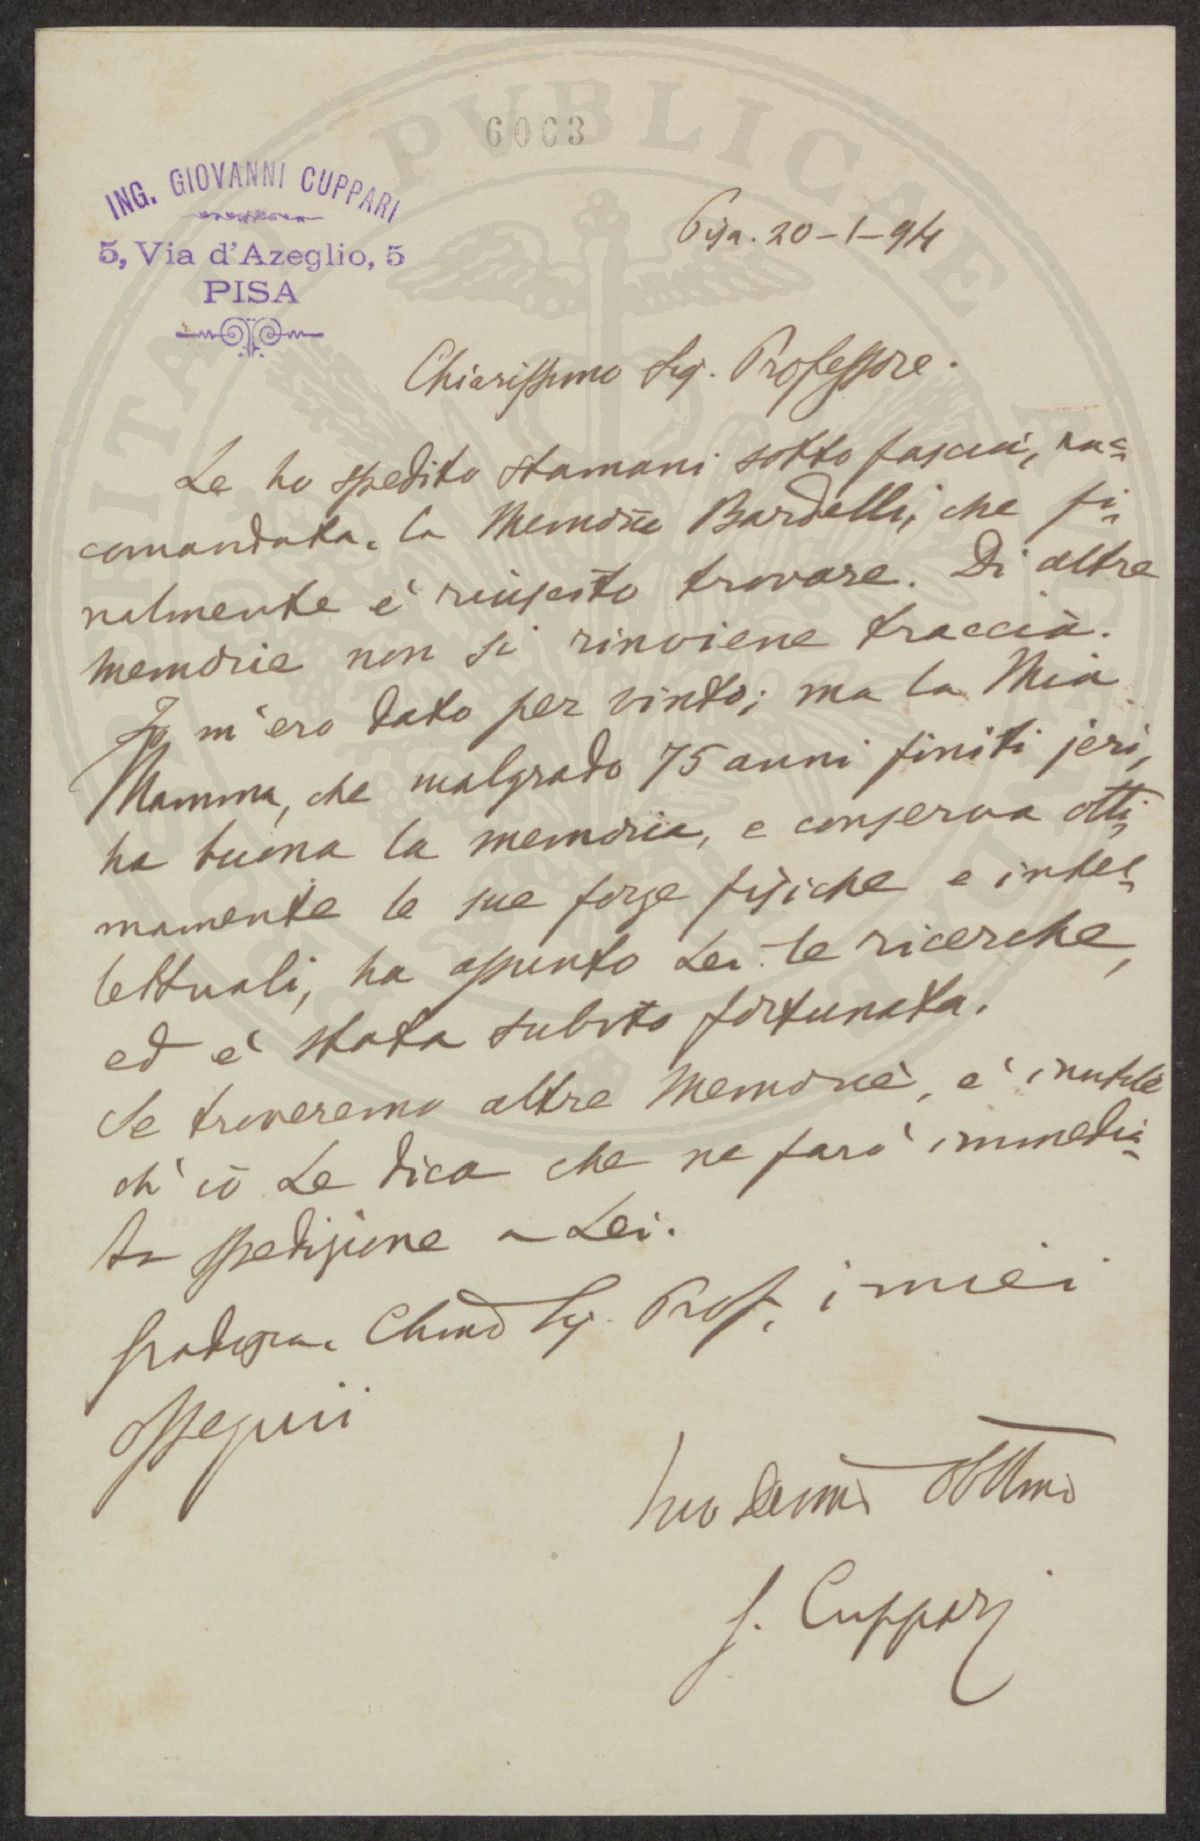 6003
ING. GIOVANNI CUPPARI
5, Via d'Azeglio, 5
PISA
Pisa. 20-1-94
Chiarissimo Sig. Professore.
Le ho spedito stamani sotto fascia, rac=
comandata, la Memoria Bardelli, che fi=
nalmente è riuscito trovare. Di altre
memorie non si rinviene traccia.
Io m'ero dato per vinto; ma la Mia
Mamma, che malgrado 75 anni finiti jeri,
ha buona la memoria, e conserva otti=
mamente le sue forze fisiche e intel=
lettuali, ha assunto Lei le ricerche,
ed è stata subito fortunata.
Se troveremo altre Memorie, è inutile
ch'io Le dica che ne farò immedia=
ta spedizione a Lei.
Gradisca, Chmo Sig. Prof, i miei
ossequii
Suo Devmo Obblmo
G. Cuppari